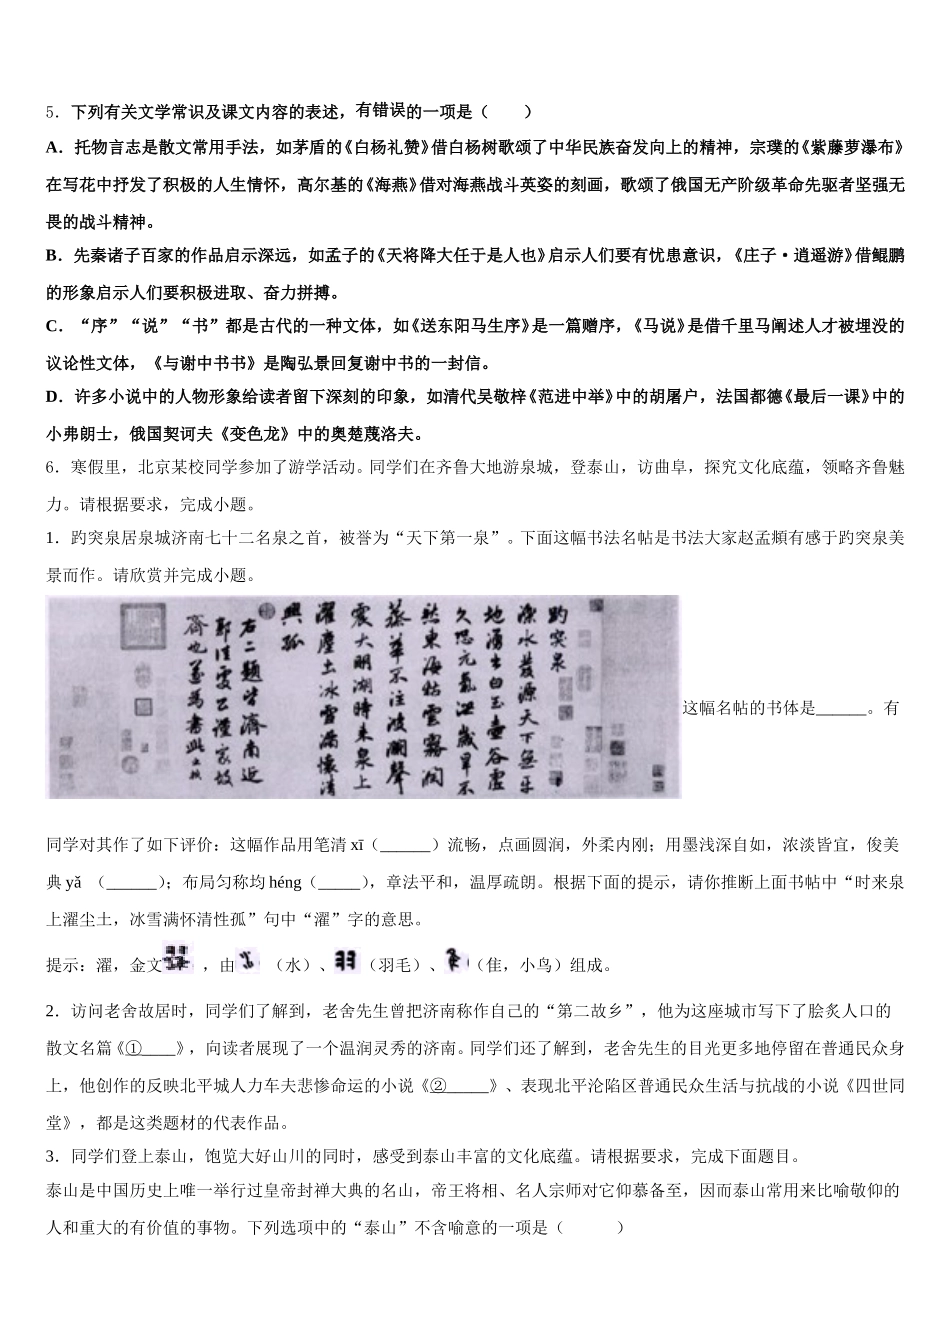 5．下列有关文学常识及课文内容的表述，有错误的一项是（　　）
A．托物言志是散文常用手法，如茅盾的《白杨礼赞》借白杨树歌颂了中华民族奋发向上的精神，宗璞的《紫藤萝瀑布》
在写花中抒发了积极的人生情怀，高尔基的《海燕》借对海燕战斗英姿的刻画，歌颂了俄国无产阶级革命先驱者坚强无
畏的战斗精神。
B．先秦诸子百家的作品启示深远，如孟子的《天将降大任于是人也》启示人们要有忧患意识，《庄子•逍遥游》借鲲鹏
的形象启示人们要积极进取、奋力拼搏。
C．“序”“说”“书”都是古代的一种文体，如《送东阳马生序》是一篇赠序，《马说》是借千里马阐述人才被埋没的
议论性文体，《与谢中书书》是陶弘景回复谢中书的一封信。
D．许多小说中的人物形象给读者留下深刻的印象，如清代吴敬梓《范进中举》中的胡屠户，法国都德《最后一课》中的
小弗朗士，俄国契诃夫《变色龙》中的奥楚蔑洛夫。
6．寒假里，北京某校同学参加了游学活动。同学们在齐鲁大地游泉城，登泰山，访曲阜，探究文化底蕴，领略齐鲁魅
力。请根据要求，完成小题。
1．趵突泉居泉城济南七十二名泉之首，被誉为“天下第一泉”。下面这幅书法名帖是书法大家赵孟頫有感于趵突泉美
景而作。请欣赏并完成小题。
趵突泉
濼水發源天下無平
地湧出白玉壺谷虛
久恐元氣泄歲旱不
愁東海枯雲霧潤
蒸華不注波瀾聲
震大明湖時來泉上
濯塵土冰雪滿懷清
興孤
右二題皆濟南近
郭佳處公謹家故
齊也遂為書此
这幅名帖的书体是______。有
同学对其作了如下评价：这幅作品用笔清 xī（______）流畅，点画圆润，外柔内刚；用墨浅深自如，浓淡皆宜，俊美
典 yǎ （______）；布局匀称均 héng（_____），章法平和，温厚疏朗。根据下面的提示，请你推断上面书帖中“时来泉
上濯尘土，冰雪满怀清性孤”句中“濯”字的意思。
提示：濯，金文 ，由 （水）、（羽毛）、（隹，小鸟）组成。
2．访问老舍故居时，同学们了解到，老舍先生曾把济南称作自己的“第二故乡”，他为这座城市写下了脍炙人口的
散文名篇《①____》，向读者展现了一个温润灵秀的济南。同学们还了解到，老舍先生的目光更多地停留在普通民众身
上，他创作的反映北平城人力车夫悲惨命运的小说《②_____》、表现北平沦陷区普通民众生活与抗战的小说《四世同
堂》，都是这类题材的代表作品。
3．同学们登上泰山，饱览大好山川的同时，感受到泰山丰富的文化底蕴。请根据要求，完成下面题目。
泰山是中国历史上唯一举行过皇帝封禅大典的名山，帝王将相、名人宗师对它仰慕备至，因而泰山常用来比喻敬仰的
人和重大的有价值的事物。下列选项中的“泰山”不含喻意的一项是（　　　）